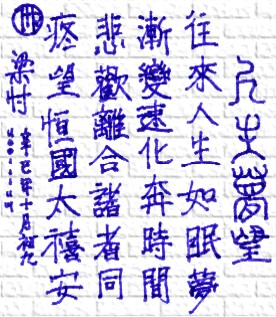 凡夫夢望
往來人生如眠夢
漸變速化奔時間
悲歡離合諸者同
疼望恒國太禧安
梁忖
辛巳年十月初九